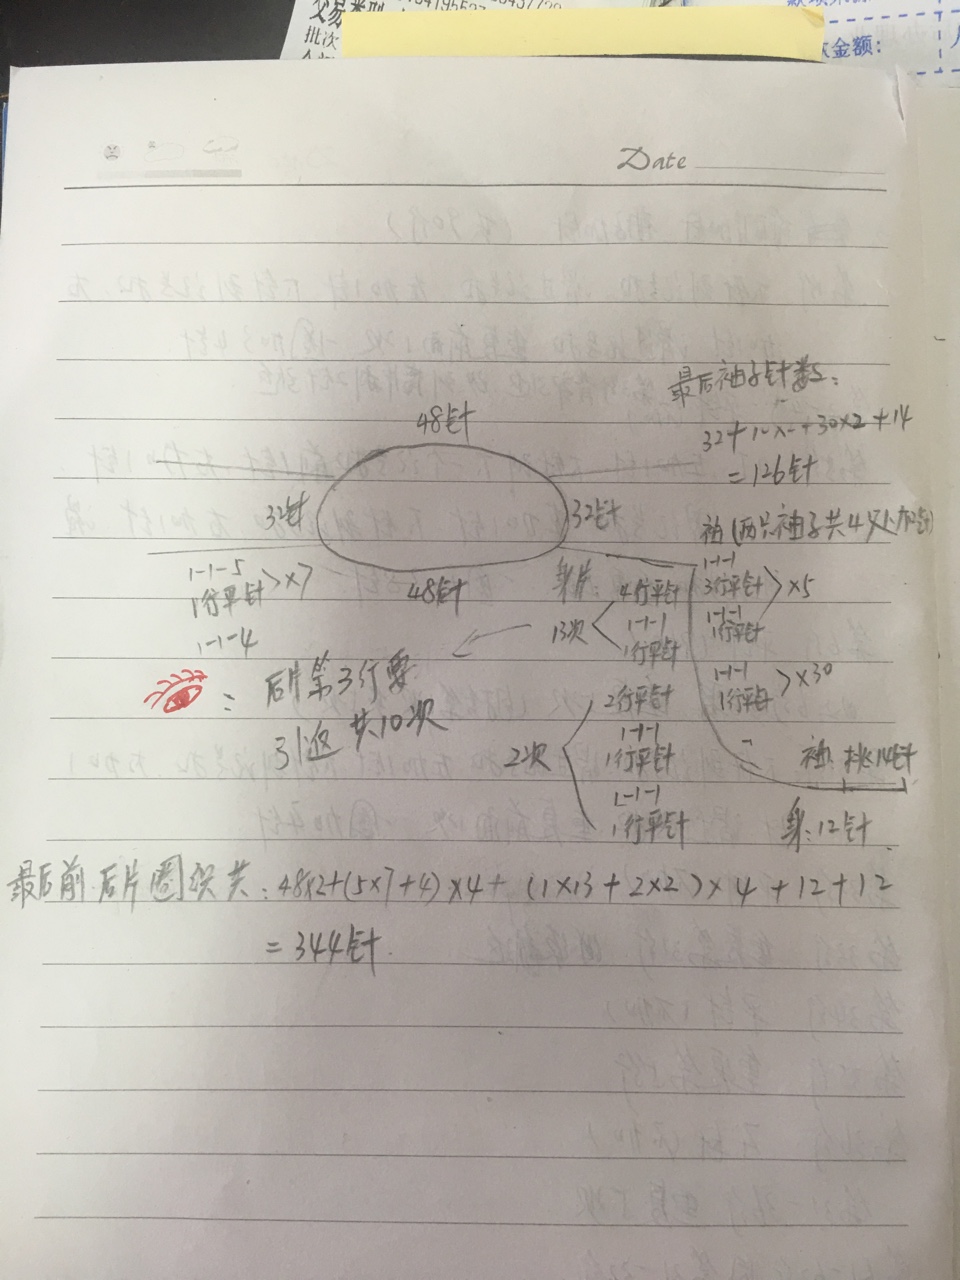 批次
金额:
Date
最后袖子针数:
48针
+30×2+14
=126针
32针
32针
袖(两片袖子共4处加针)
1-1-5
1行平针
>×7
1-1-4
48针
身片:
13次
4行平针
1-1-1
1行平针
1-1-1
3行平针
1-1-1
1行平针
>×5
1-1-1
1行平针
>×30
: 后片第3行要
引返 共10次
2次
2行平针
1-1-1
1行平针
1-1-1
1行平针
袖: 挑14针
身:12针
最后前.后片圈织共:48×2+(5×7+4)×4+(1×13+2×2)×4+12+12
=344针.